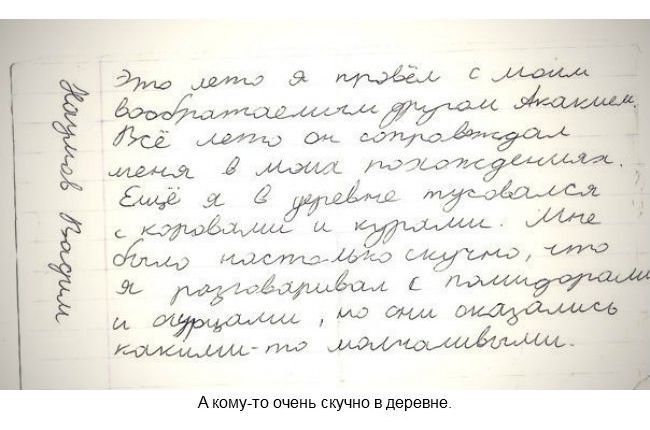 Наумов Вадим
Это лето я провёл с моим
воображаемым другом Акакием.
Всё лето он сопровождал
меня в моих похождениях.
Ещё я в деревне тусовался
с коровами и курами. Мне
было настолько скучно, что
я разговаривал с помидорами
и огурцами, но они оказались
какими-то молчаливыми.
А кому-то очень скучно в деревне.